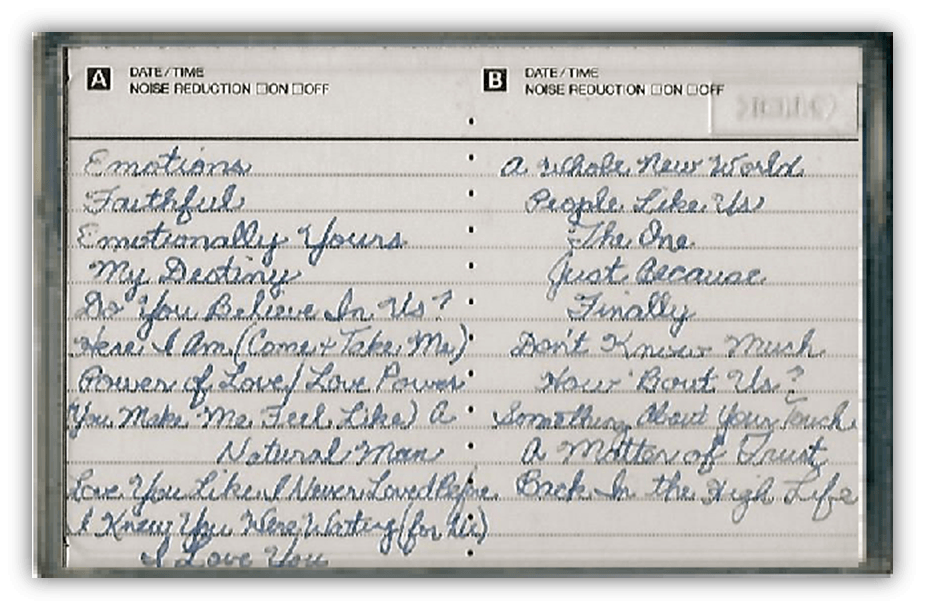 A DATE/TIME
NOISE REDUCTION □ON □OFF
Emotions
Faithful
Emotionally Yours
My Destiny
Do You Believe In Us?
Here I Am (Come + Take Me)
Power of Love/Love Power
(You Make Me Feel Like) A
Natural Man
Love You Like I Never Loved Before
I Knew You Were Waiting (for Me)
I Love You
B DATE/TIME
NOISE REDUCTION □ON □OFF
A Whole New World
People Like Us
The One
Just Because
Finally
Don't Know Much
How 'Bout Us?
Something About Your Touch
A Matter of Trust
Back In the High Life